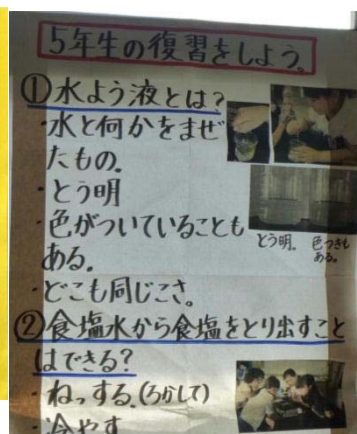 5年生の復習をしよう。
①水よう液とは?
・水と何かをまぜ
たもの。
・とう明
・色がついていることも
ある。
とう明。 色つきも
ある。
・どこも同じこさ。
②食塩水から食塩をとり出すこと
はできる?
・ねっする。(ろかして)
・冷やす